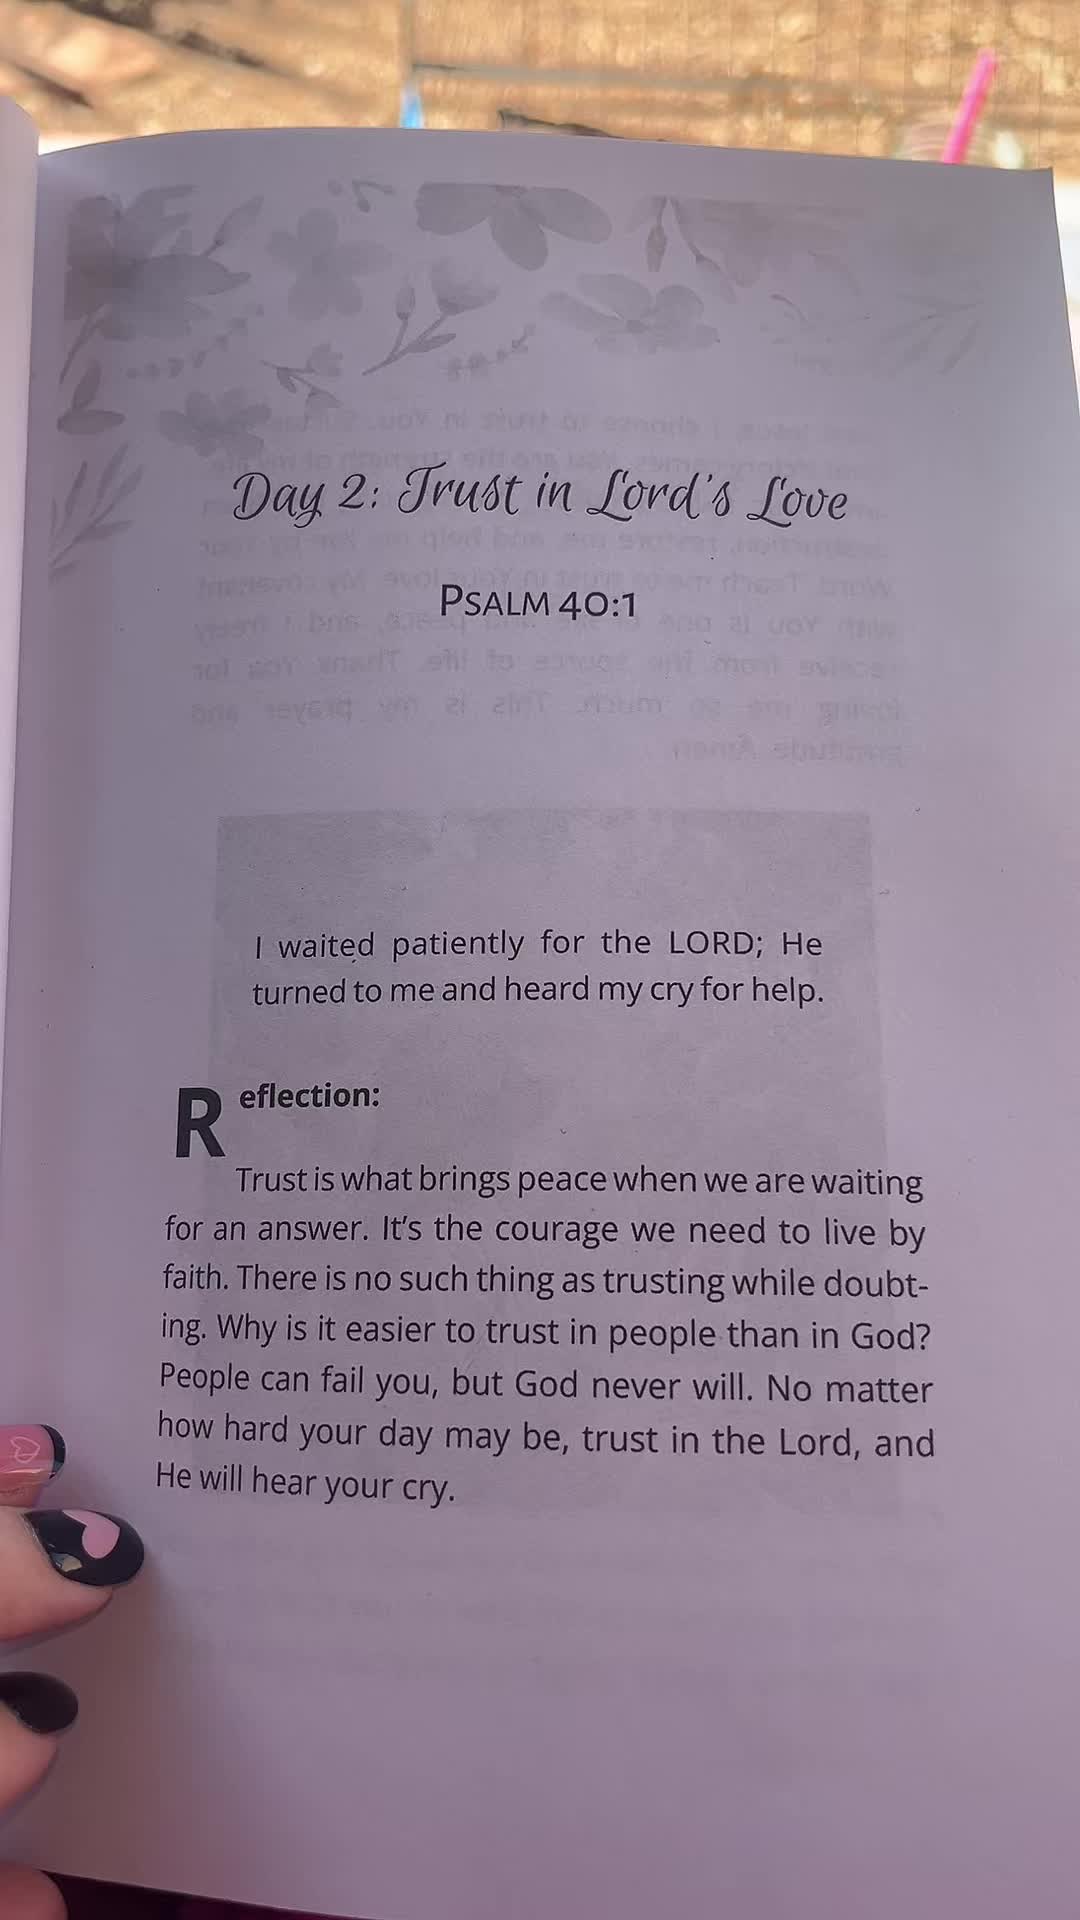 Day 2: Trust in Lord's Love
PSALM 40:1
I waited patiently for the LORD; He
turned to me and heard my cry for help.
Reflection:
Trust is what brings peace when we are waiting
for an answer. It's the courage we need to live by
faith. There is no such thing as trusting while doubt-
ing. Why is it easier to trust in people than in God?
People can fail you, but God never will. No matter
how hard your day may be, trust in the Lord, and
He will hear your cry.